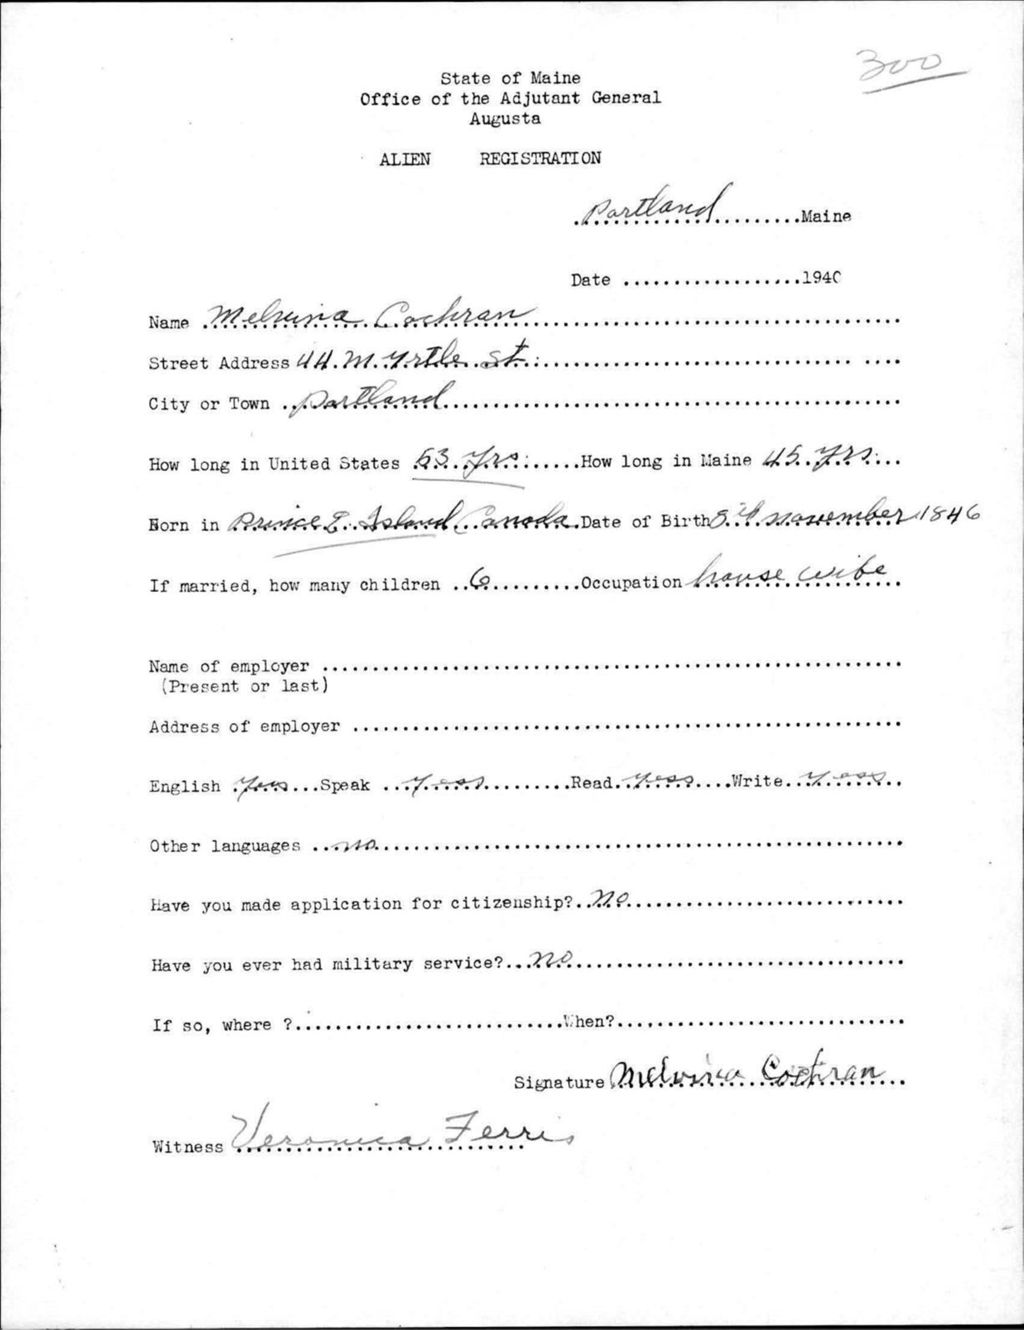 300
State of Maine
Office of the Adjutant General
Augusta
ALIEN REGISTRATION
Portland.........Maine
Date ..................1940
Name Melvina Cochran
Street Address 44 Myrtle St.
City or Town Portland
How long in United States 53 Yrs. How long in Maine 45 Yrs.
Born in Prince E. Island Canada Date of Birth 5th november 1846
If married, how many children 6 Occupation house wife
Name of employer
(Present or last)
Address of employer
English Yes Speak Yess Read Yess Write Yess
Other languages no
Have you made application for citizenship? No
Have you ever had military service? No
If so, where ? When?
Signature Melvina Cochran
Witness Veronica Ferris